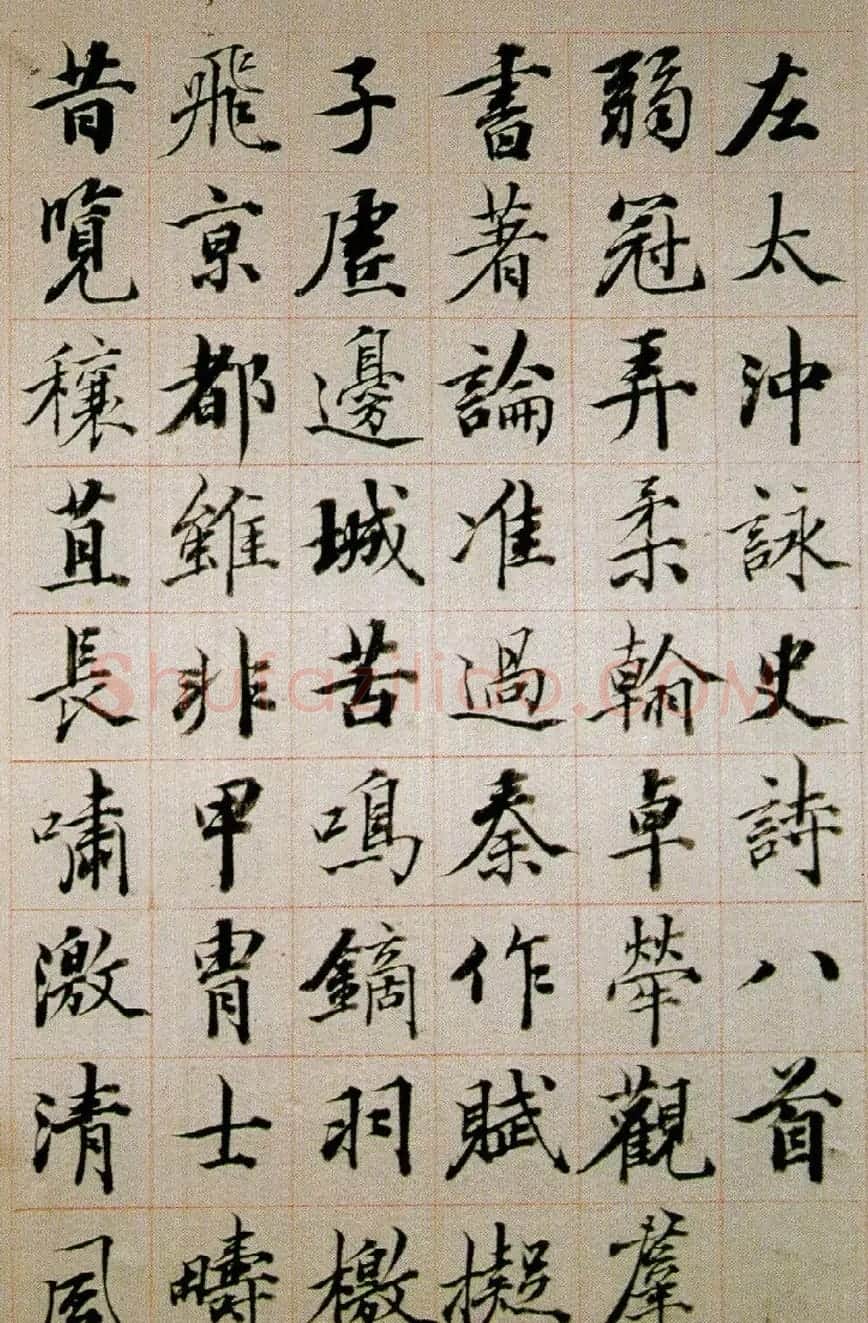 左太沖詠史詩八首
弱冠弄柔翰卓犖觀羣
書著論准過秦作賦擬
子虛邊城苦鳴鏑羽檄
飛京都雖非甲冑士疇
昔覽穰苴長嘯激清風
Shufaziliao.COM